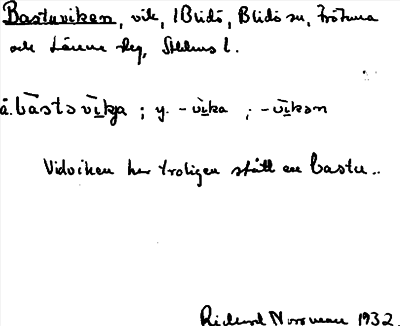 Bastuviken, vik, i Blidö, Blidö sn, Frötuna
och Länna skg, Sthlms l.
ä. bàstovi̱kja ; y. -vi̱ka ; -vi̱kən
Vid viken har troligen stått en bastu..
Rickard Norsman 1932.